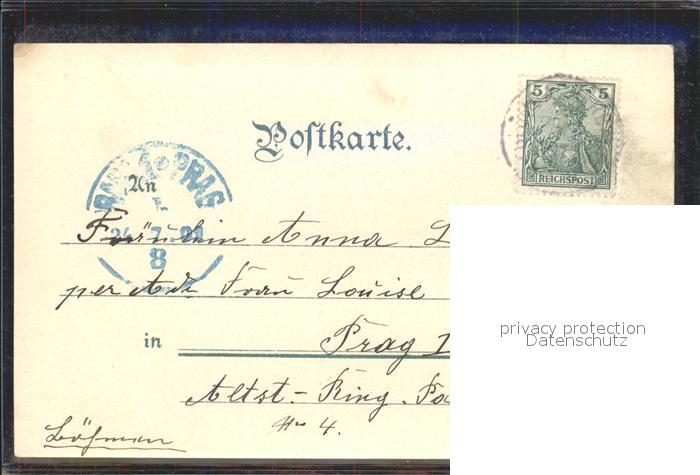 5 5
REICHSPOST
Postkarte.
PRAG
An
24 7
8
Fräulein Anna L
per Adr Frau Louise
privacy protection
Datenschutz
in Prag 1
Altst- Ring.
No 4.
Böhmen